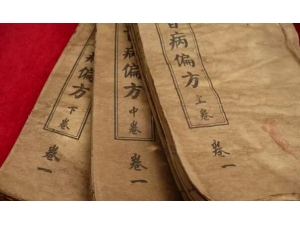 百病偏方
上卷
卷一
病偏方
中卷
卷一
偏方
下卷
卷一